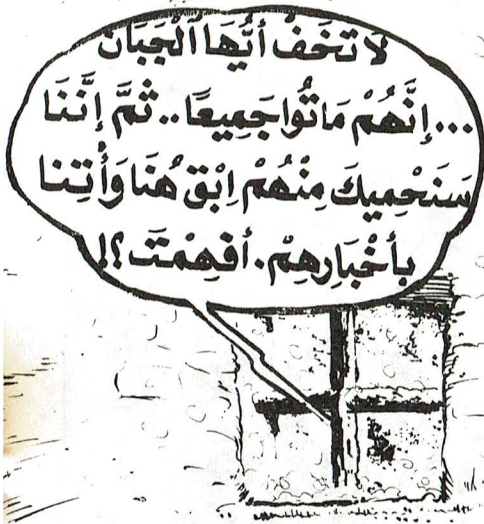 لَا تَخَفْ أَيُّهَا ٱلْجَبَانُ
...إِنَّهُمْ مَاتُوا جَمِيعًا.. ثُمَّ إِنَّنَا
سَنَحْمِيكَ مِنْهُمْ اِبْقَ هُنَا وَأْتِنا
بأَخْبَارِهِمْ. أفَهِمْتَ؟!